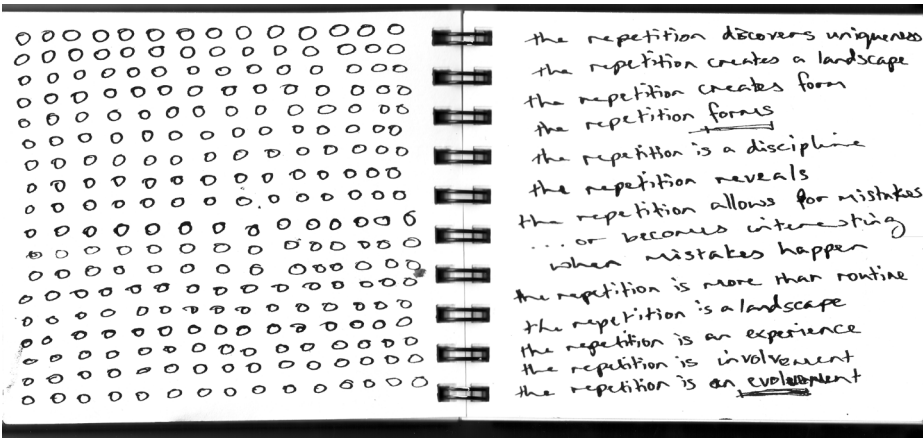 the repetition discovers uniqueness
the repetition creates a landscape
the repetition creates form
the repetition forms
the repetition is a discipline
the repetition reveals
the repetition allows for mistakes
... or becomes interesting
when mistakes happen
the repetition is more than routine
the repetition is a landscape
the repetition is an experience
the repetition is involvement
the repetition is an